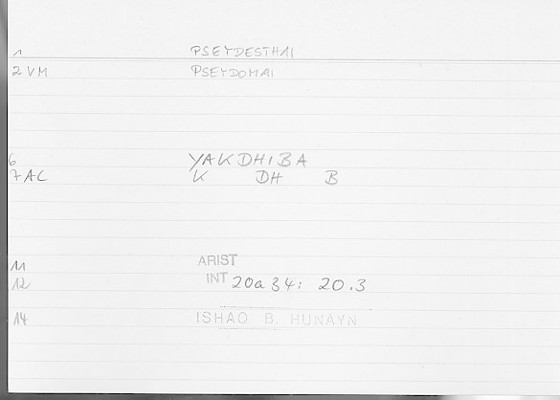 1 PSEYDESTHAI
2 VM PSEYDOMAI
6 YAKDHIBA
7 AC K DH B
11 ARIST
12 INT 20a34: 20.3
14 ISHAO B. HUNAYN